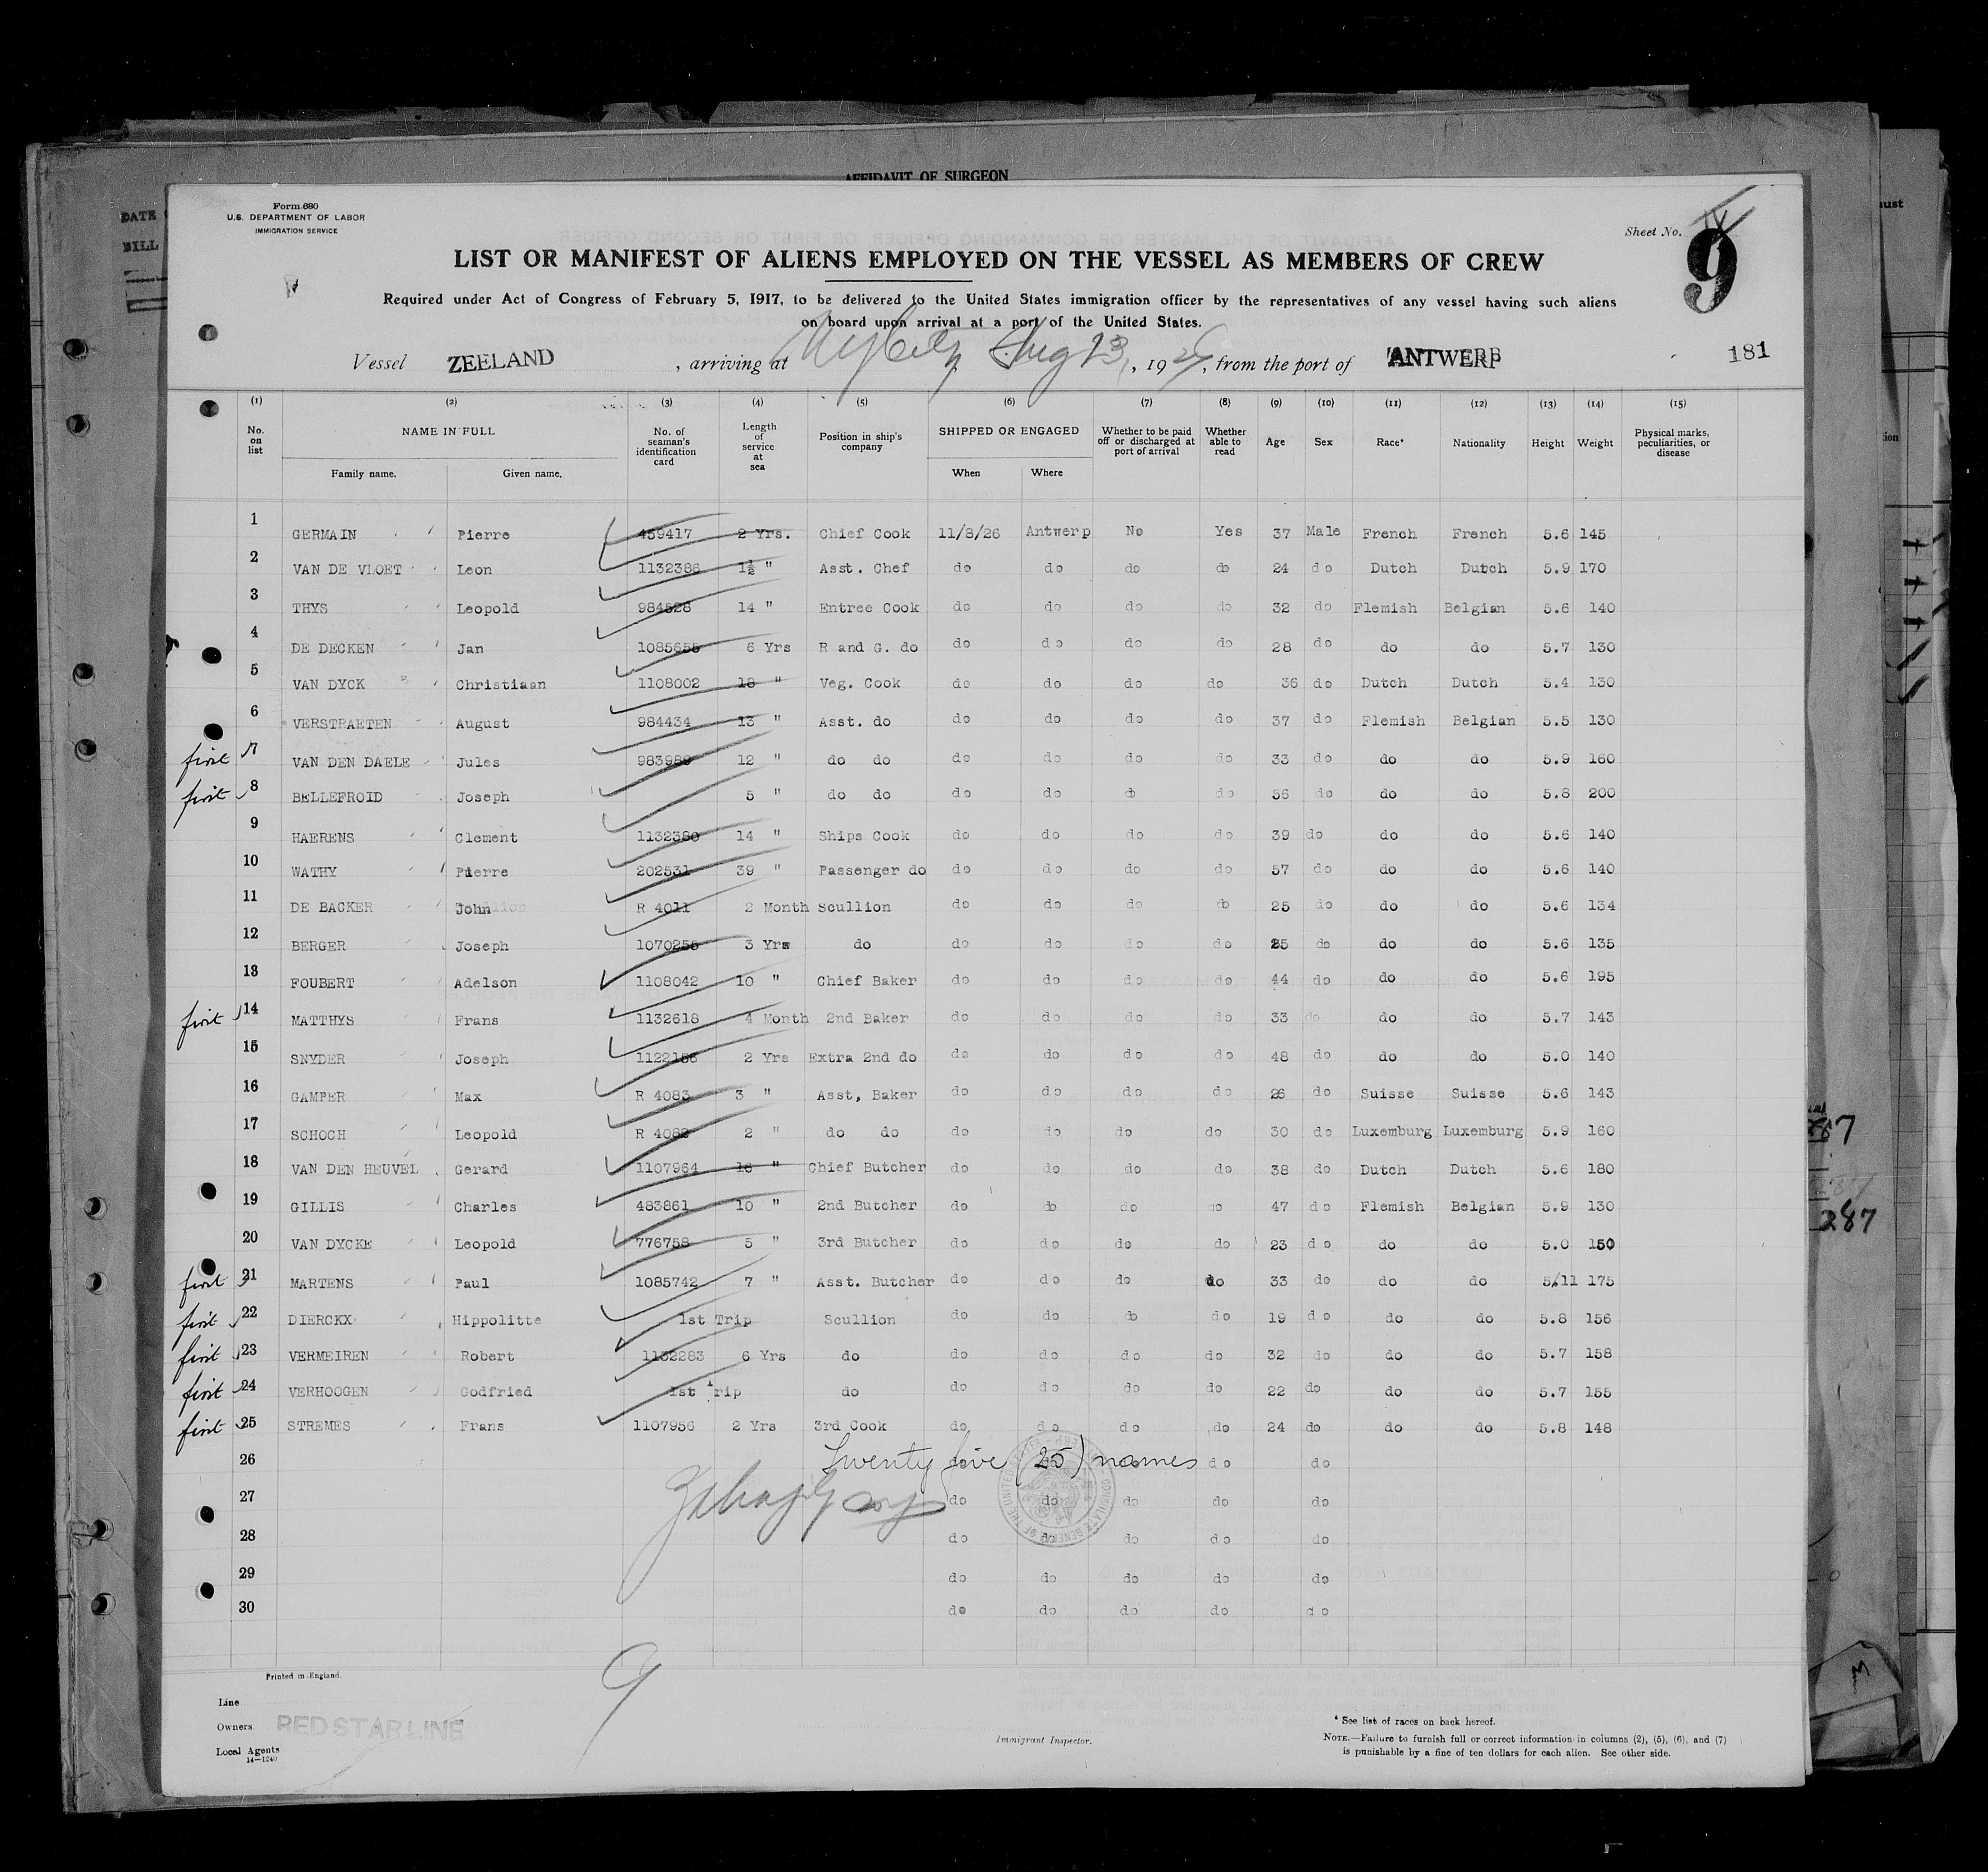 AFFIDAVIT OF SURGEON
DATE
BILL
Form 680
U.S. DEPARTMENT OF LABOR
IMMIGRATION SERVICE
Sheet No. 9
LIST OR MANIFEST OF ALIENS EMPLOYED ON THE VESSEL AS MEMBERS OF CREW
Required under Act of Congress of February 5, 1917, to be delivered to the United States immigration officer by the representatives of any vessel having such aliens
on board upon arrival at a port of the United States.
Vessel ZEELAND, arriving at NY City Aug 23, 1926, from the port of ANTWERP 181
(1) (2) (3) (4) (5) (6) (7) (8) (9) (10) (11) (12) (13) (14) (15)
No. on list NAME IN FULL Family name. Given name. No. of seaman's identification card Length of service at sea Position in ship's company SHIPPED OR ENGAGED When Where Whether to be paid off or discharged at port of arrival Whether able to read Age Sex Race* Nationality Height Weight Physical marks, peculiarities, or disease
1 GERMAIN Pierre 459417 2 Yrs. Chief Cook 11/8/26 Antwerp No Yes 37 Male French French 5.6 145
2 VAN DE VLOET Leon 1132386 1½ " Asst. Chef do do do do 24 do Dutch Dutch 5.9 170
3 THYS Leopold 984528 14 " Entree Cook do do do do 32 do Flemish Belgian 5.6 140
4 DE DECKEN Jan 1085655 6 Yrs R and G. do do do do do 28 do do do 5.7 130
5 VAN DYCK Christiaan 1108002 18 " Veg. Cook do do do do 36 do Dutch Dutch 5.4 130
6 VERSTRAETEN August 984434 13 " Asst. do do do do do 37 do Flemish Belgian 5.5 130
first 7 VAN DEN DAELE Jules 983989 12 " do do do do do do 33 do do do 5.9 160
first 8 BELLEFROID Joseph 5 " do do do do do do 56 do do do 5.8 200
9 HAERENS Clement 1132380 14 " Ships Cook do do do do 39 do do do 5.6 140
10 WATHY Pierre 202531 39 " Passenger do do do do do 57 do do do 5.6 140
11 DE BACKER John R 4011 2 Month Scullion do do do do 25 do do do 5.6 134
12 BERGER Joseph 1070255 3 Yrs do do do do do 25 do do do 5.6 135
13 FOUBERT Adelson 1108042 10 " Chief Baker do do do do 44 do do do 5.6 195
first 14 MATTHYS Frans 1132618 4 Month 2nd Baker do do do do 33 do do do 5.7 143
15 SNYDER Joseph 1122156 2 Yrs Extra 2nd do do do do do 48 do do do 5.0 140
16 GAMPER Max R 4083 3 " Asst, Baker do do do do 26 do Suisse Suisse 5.6 143
17 SCHOCH Leopold R 4082 2 " do do do do do do 30 do Luxemburg Luxemburg 5.9 160
18 VAN DEN HEUVEL Gerard 1107964 16 " Chief Butcher do do do do 38 do Dutch Dutch 5.6 180
19 GILLIS Charles 483861 10 " 2nd Butcher do do do do 47 do Flemish Belgian 5.9 130
20 VAN DYCKE Leopold 776758 5 " 3rd Butcher do do do do 23 do do do 5.0 150
first 21 MARTENS Paul 1085742 7 " Asst. Butcher do do do do 33 do do do 5/11 175
first 22 DIERCKX Hippolitte 1st Trip Scullion do do do do 19 do do do 5.8 156
first 23 VERMEIREN Robert 1132283 6 Yrs do do do do do 32 do do do 5.7 158
first 24 VERHOOGEN Godfried 1st Trip do do do do do 22 do do do 5.7 155
first 25 STREMES Frans 1107956 2 Yrs 3rd Cook do do do do 24 do do do 5.8 148
26 Twenty five (25) names do do
27 do do do do do
28 do do do do do
29 do do do do do
30 do do do do do
287
9
Printed in England.
Line
Owners RED STAR LINE
Local Agents
14—1240
Immigrant Inspector.
* See list of races on back hereof.
NOTE.—Failure to furnish full or correct information in columns (2), (5), (6), and (7)
is punishable by a fine of ten dollars for each alien. See other side.